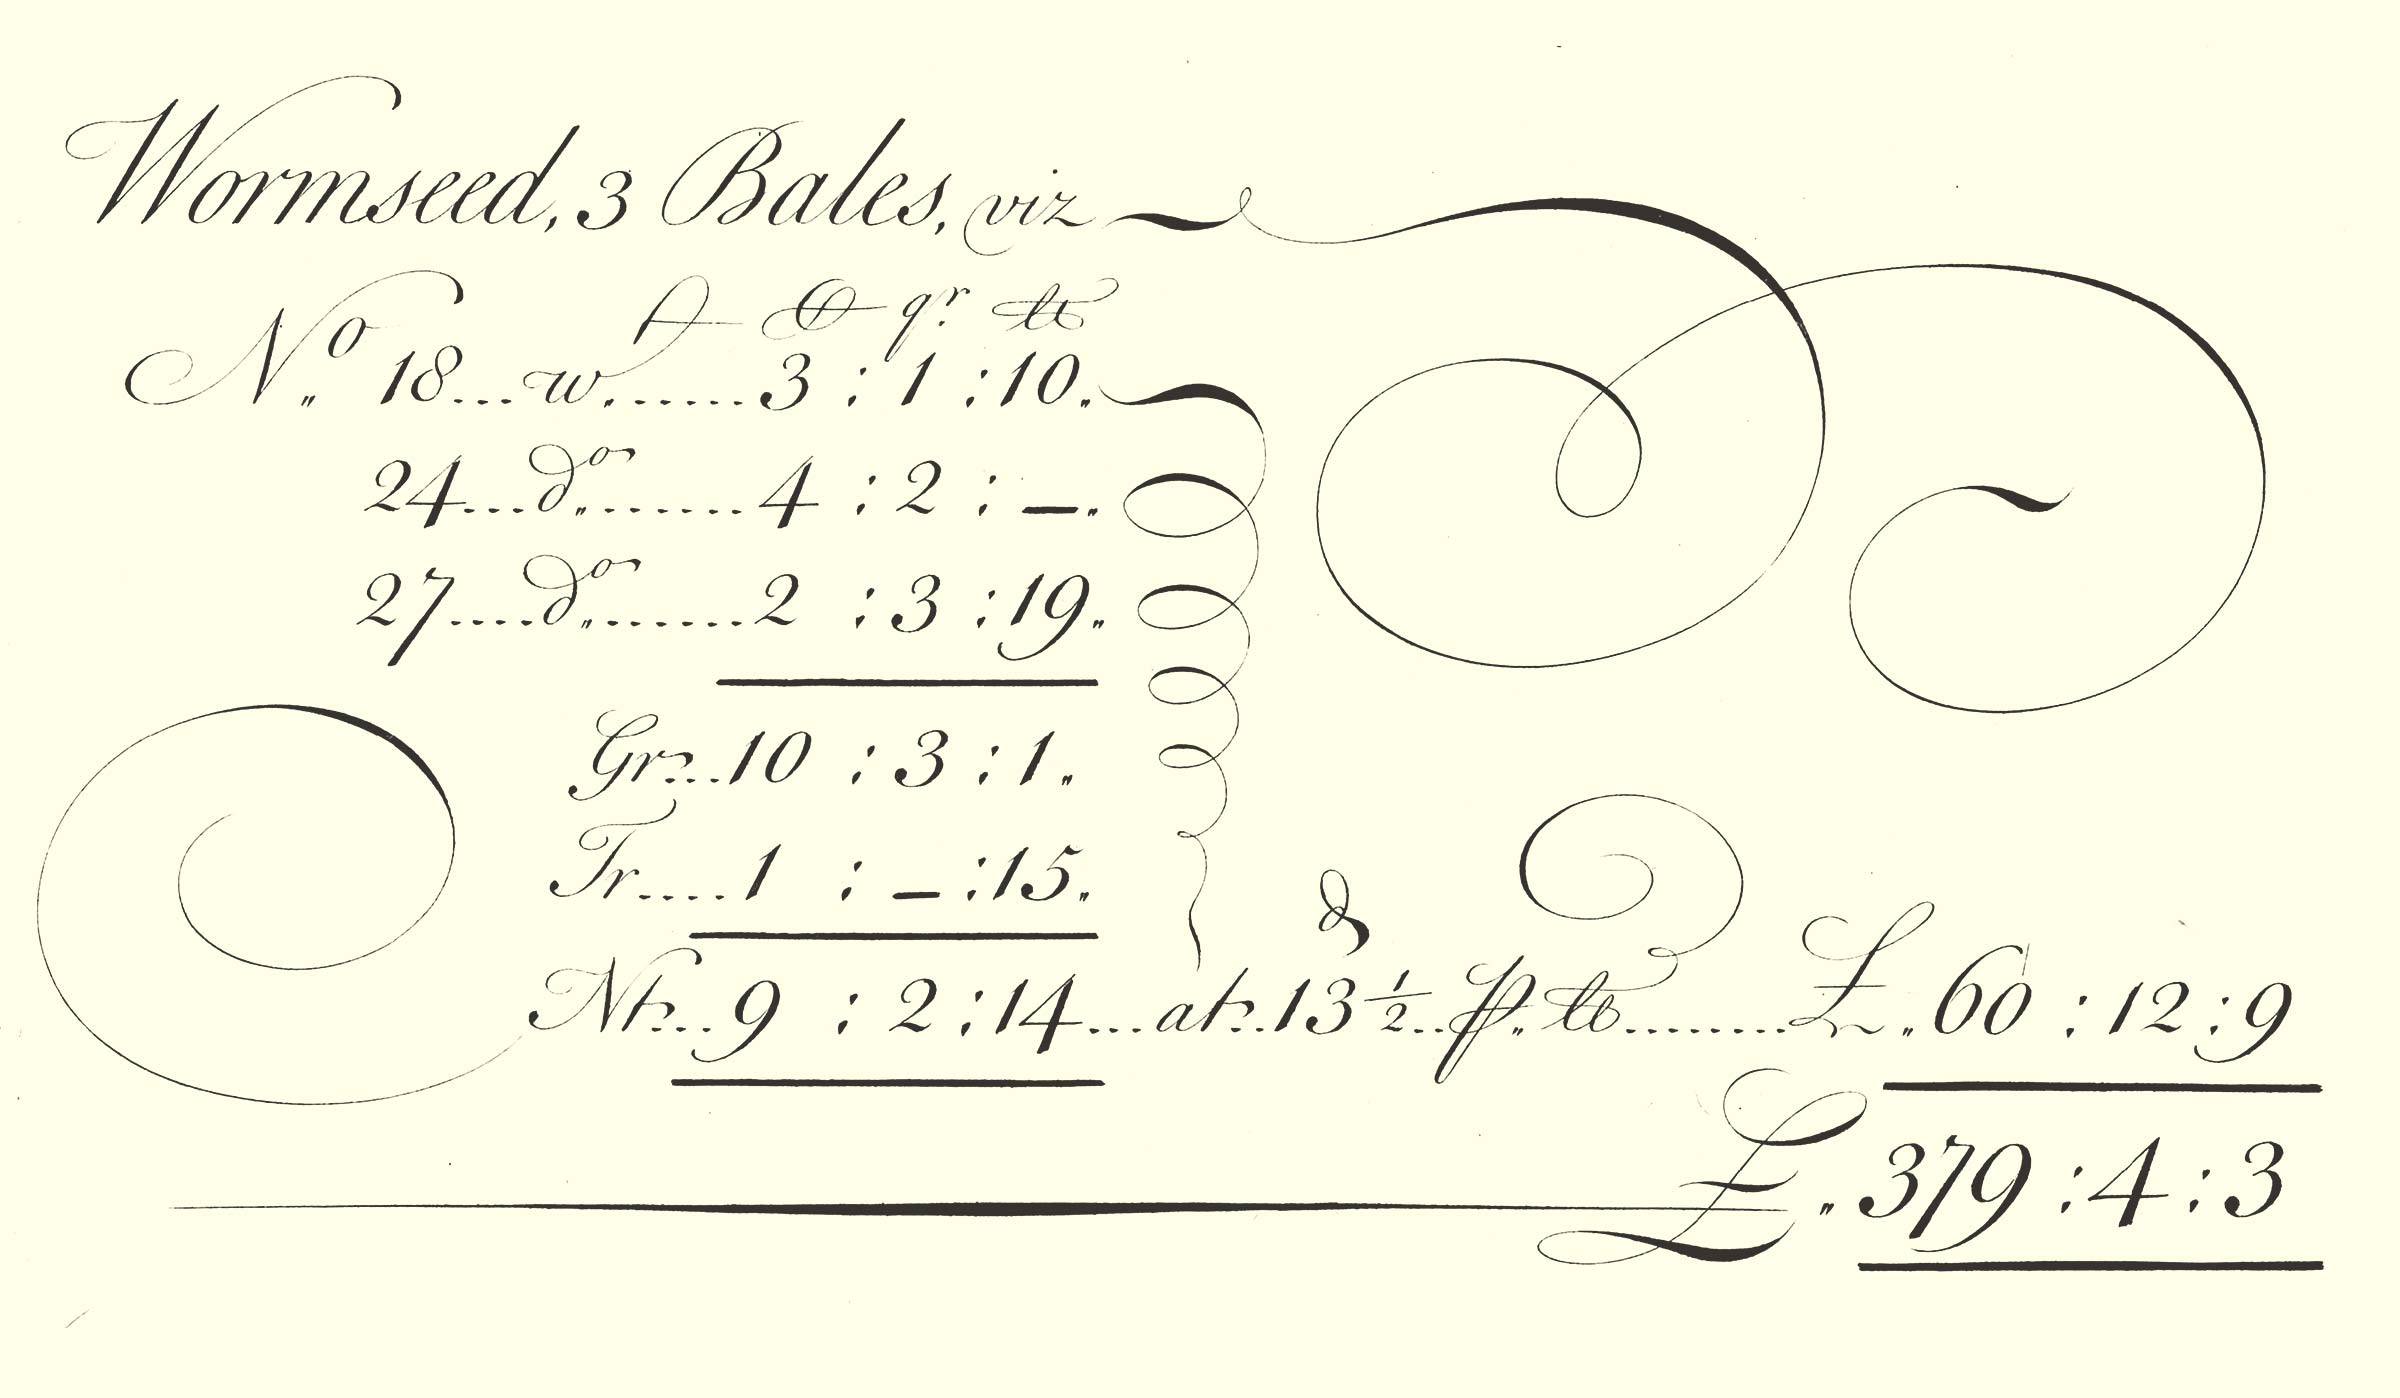 Wormseed, 3 Bales, viz
C qr lb
No. 18...wt.......3 : 1 : 10.
24...do........4 : 2 : –.
27....do........2 : 3 : 19.
Grs...10 : 3 : 1.
Tr....1 : – : 15.
d
Nt...9 : 2 : 14...at..13 1/2..p. lb........£.60 : 12 : 9
£.379 : 4 : 3